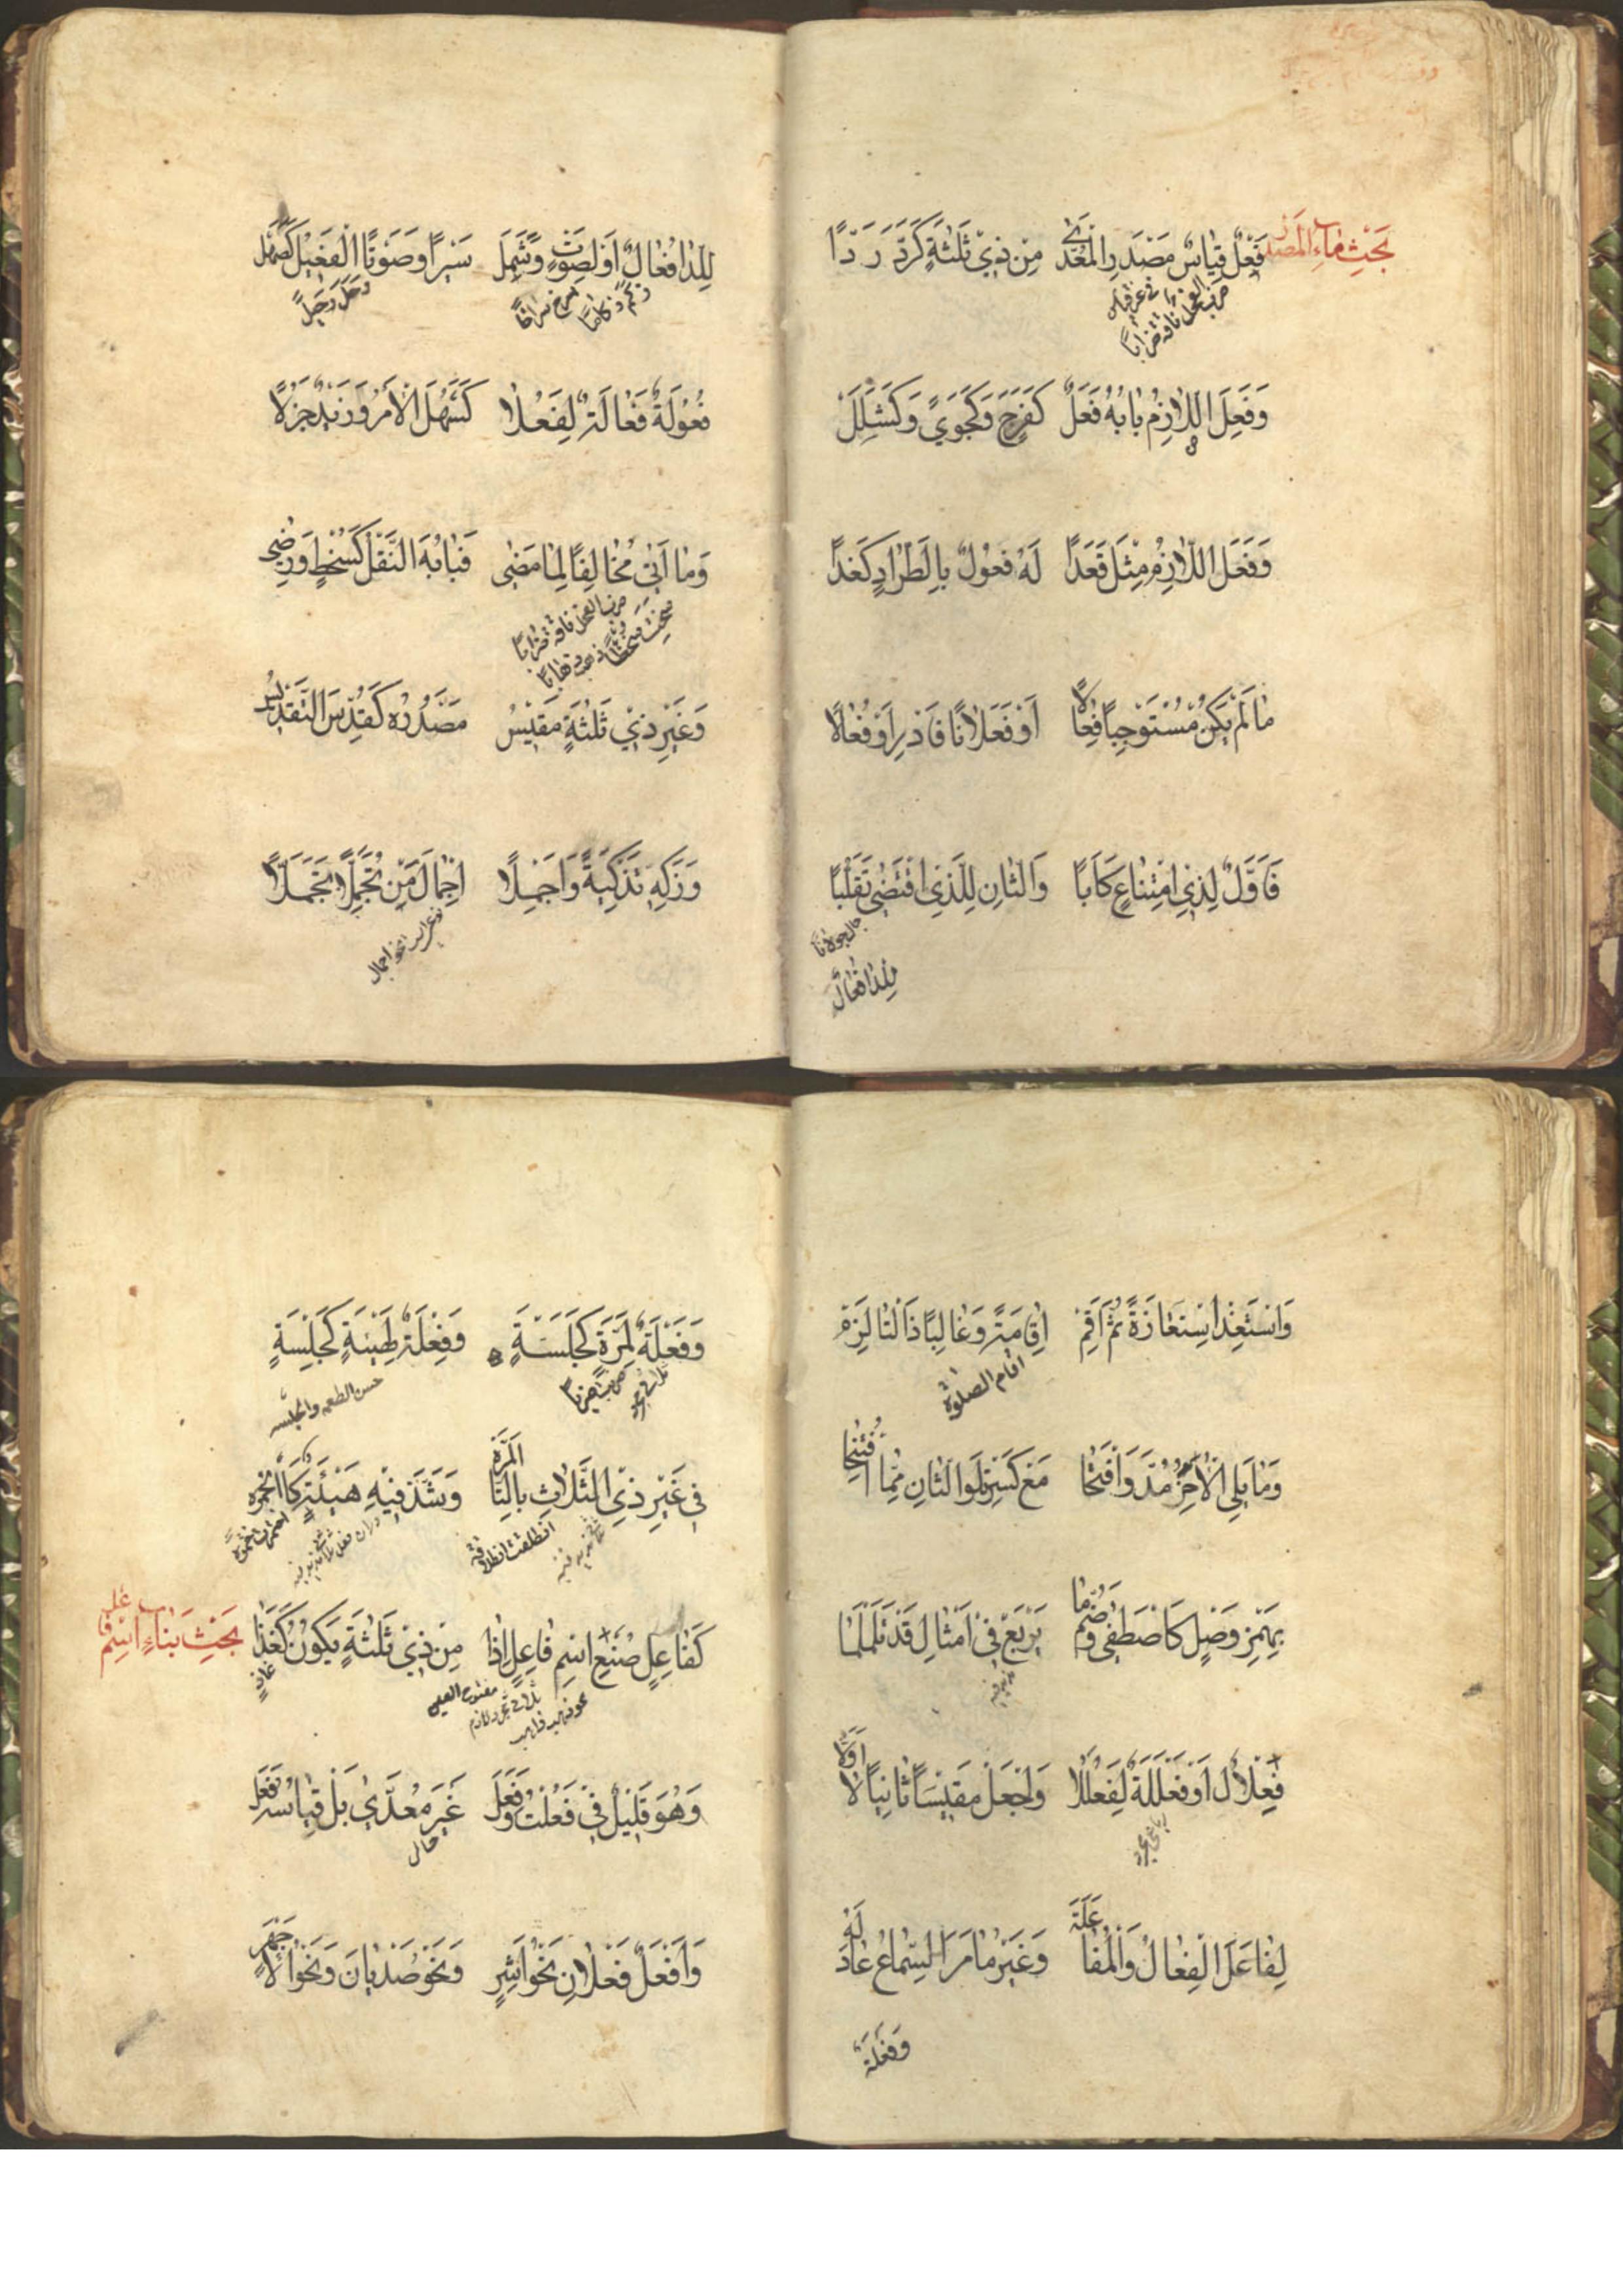 بَحْثِ بَابِ المَصْدَر
فَعْلٌ قِيَاسُ مَصْدَرِ الْمُعَدّٰى مِنْ ذِيْ ثَلٰثَةٍ كَرَدَّ رَدًّا
ضرب الفحل ناقة ضرابًا
وَفَعِلَ اللَّازِمُ بَابُهُ فَعَلْ كَفَرَحٍ وَكَجَوًى وَكَشَلَلْ
وَفَعَلَ اللَّازِمُ مِثْلَ قَعَدَا لَهُ فُعُوْلٌ بِالطِّرَادٍ كَغَدَا
مَا لَمْ يَكُنْ مُسْتَوْجِبًا فِعَالًا أَوْ فَعَلَانًا فَادْرِ أَوْ فُعَالًا
فَأَوَّلٌ لِذِي امْتِنَاعٍ كَأَبَا وَالثَّانِ لِلَّذِي اقْتَضٰى تَقَلُّبًا
جال جولانًا
لِلدَّا فُعَالٌ
لِلدَّا فُعَالٌ أَوْ لِصَوْتٍ وَشَمِلْ سَيْرًا وَصَوْتًا الْفَعِيْلُ كَصَهَلْ
زكم زكامًا
صرخ صراخًا
رحل رحيلًا
فُعُوْلَةٌ فَعَالَةٌ لِفَعُلَا كَسَهُلَ الْأَمْرُ وَزَيْدٌ جَزُلَا
وَمَا أَتٰى مُخَالِفًا لِمَا مَضٰى فَبَابُهُ النَّقْلُ كَسُخْطٍ وَرِضٰى
ضرب الفحل ناقة ضرابًا
ذهب ذهابًا
وَغَيْرُ ذِيْ ثَلٰثَةٍ مَقِيْسُ مَصْدَرُهُ كَقُدِّسَ التَّقْدِيْسُ
وَزَكِّهِ تَزْكِيَةً وَأَجْمِلَا إِجْمَالَ مَنْ تَجَمُّلًا تَجَمَّلَا
وَاسْتَعِذْ اسْتِعَاذَةً ثُمَّ أَقِمْ إِقَامَةً وَغَالِبًا ذَا التَّا لَزِمْ
اقام الصلوة
وَمَا يَلِي الْآخِرُ مُدَّ وَافْتَحَا مَعْ كَسْرِ تِلْوِ الثَّانِ مِمَّا افْتُتِحَا
بِهَمْزِ وَصْلٍ كَاصْطَفٰى وَضُمَّ مَا يَرْبَعُ فِيْ أَمْثَالِ قَدْ تَلَمْلَمَا
فِعْلَالٌ أَوْ فَعْلَلَةٌ لِفَعْلَلَا وَاجْعَلْ مَقِيْسًا ثَانِيًا لَا أَوَّلَا
لِفَاعَلَ الْفِعَالُ وَالْمُفَاعَلَةْ وَغَيْرُ مَا مَرَّ السِّمَاعُ عَادَ لَهْ
وَفَعْلَةٌ
وَفَعْلَةٌ لِمَرَّةٍ كَجَلْسَةٍ وَفِعْلَةٌ لِهَيْئَةٍ كَجِلْسَةٍ
حسن الطعمه والجلسه
فِي غَيْرِ ذِي الثَّلَاثِ بِالتَّا الْمَرَّةْ وَشَذَّ فِيْهِ هَيْئَةٌ كَالْخِمْرَةْ
انطلقت انطلاقة
بَحْثِ بِنَاءِ اسْمِ فَاعِل
كَفَاعِلٍ صُغِ اسْمَ فَاعِلٍ إِذَا مِنْ ذِيْ ثَلٰثَةٍ يَكُوْنُ كَغَذَا
مفتوح العين
نحو ذهب ذاهب
وَهُوَ قَلِيْلٌ فِيْ فَعُلْتُ وَفَعِلْ غَيْرَ مُعَدَّىٰ بَلْ قِيَاسُهُ فَعِلْ
وَأَفْعَلٌ فَعْلَانُ نَحْوُ أَشِرِ وَنَحْوُ صَدْيَانَ وَنَحْوُ الْأَجْهَرِ